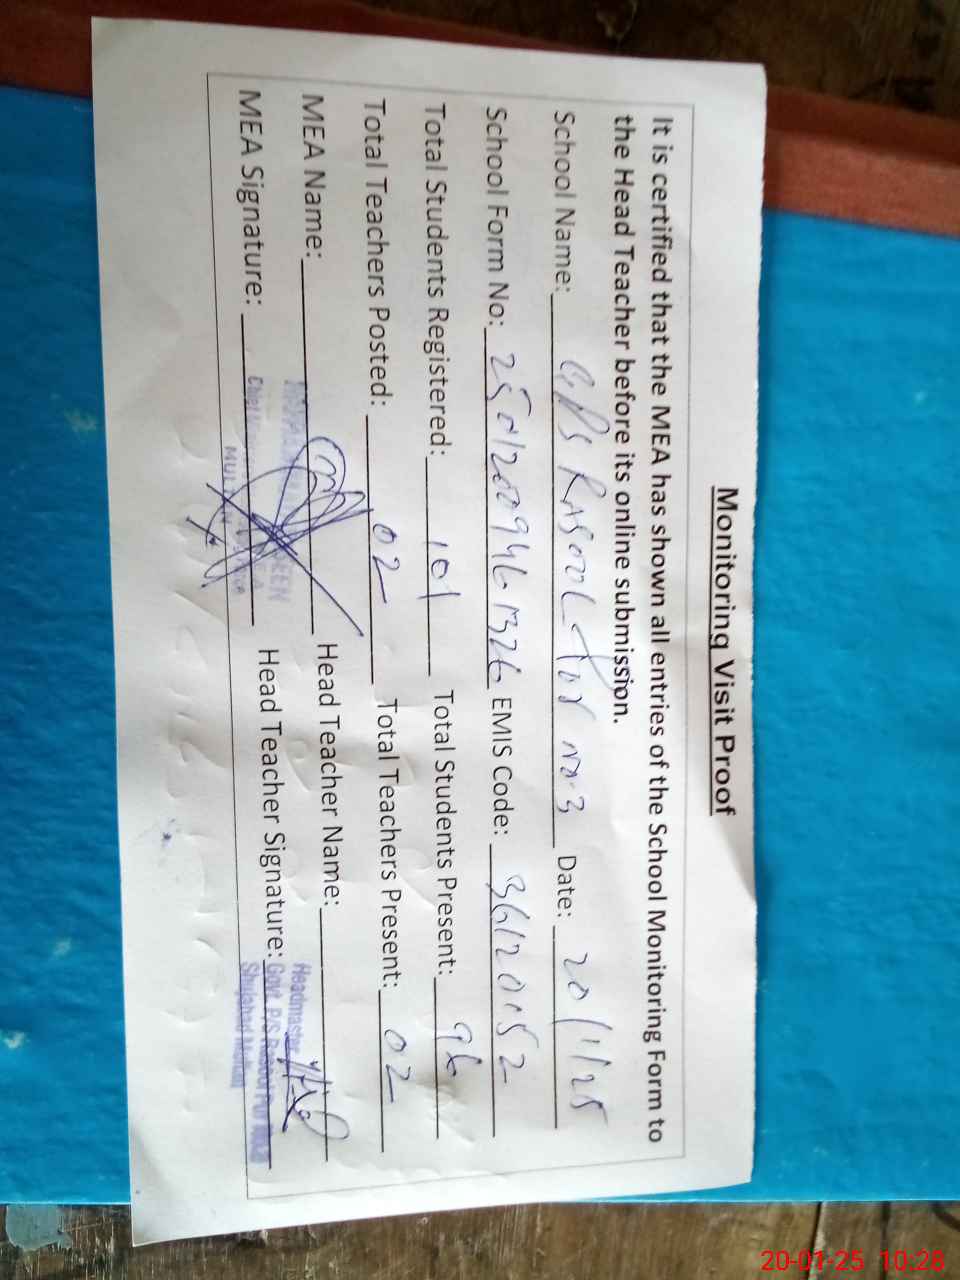 Monitoring Visit Proof
It is certified that the MEA has shown all entries of the School Monitoring Form to
the Head Teacher before its online submission.
School Name: GPS RASOOL POR NO.3 Date: 20/1/25
School Form No: EMIS Code: 36120152
Total Students Registered: 101 Total Students Present: 96
Total Teachers Posted: 02 Total Teachers Present: 02
MEA Name: Head Teacher Name:
MEA Signature: Head Teacher Signature:
Headmaster
Govt. P/S Rasool Pur
Shujabad Multan
20-01-25 10:28